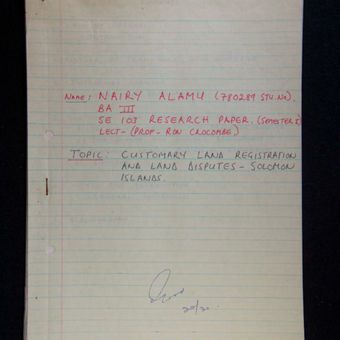 NAME: NAIRY ALAMU (780289 STU.NO).
BA III
SE 103 RESEARCH PAPER. (SEMESTER I)
LECT- (PROF- RON CROCOMBE)
TOPIC: CUSTOMARY LAND REGISTRATION
AND LAND DISPUTES - SOLOMON
ISLANDS.
20/20